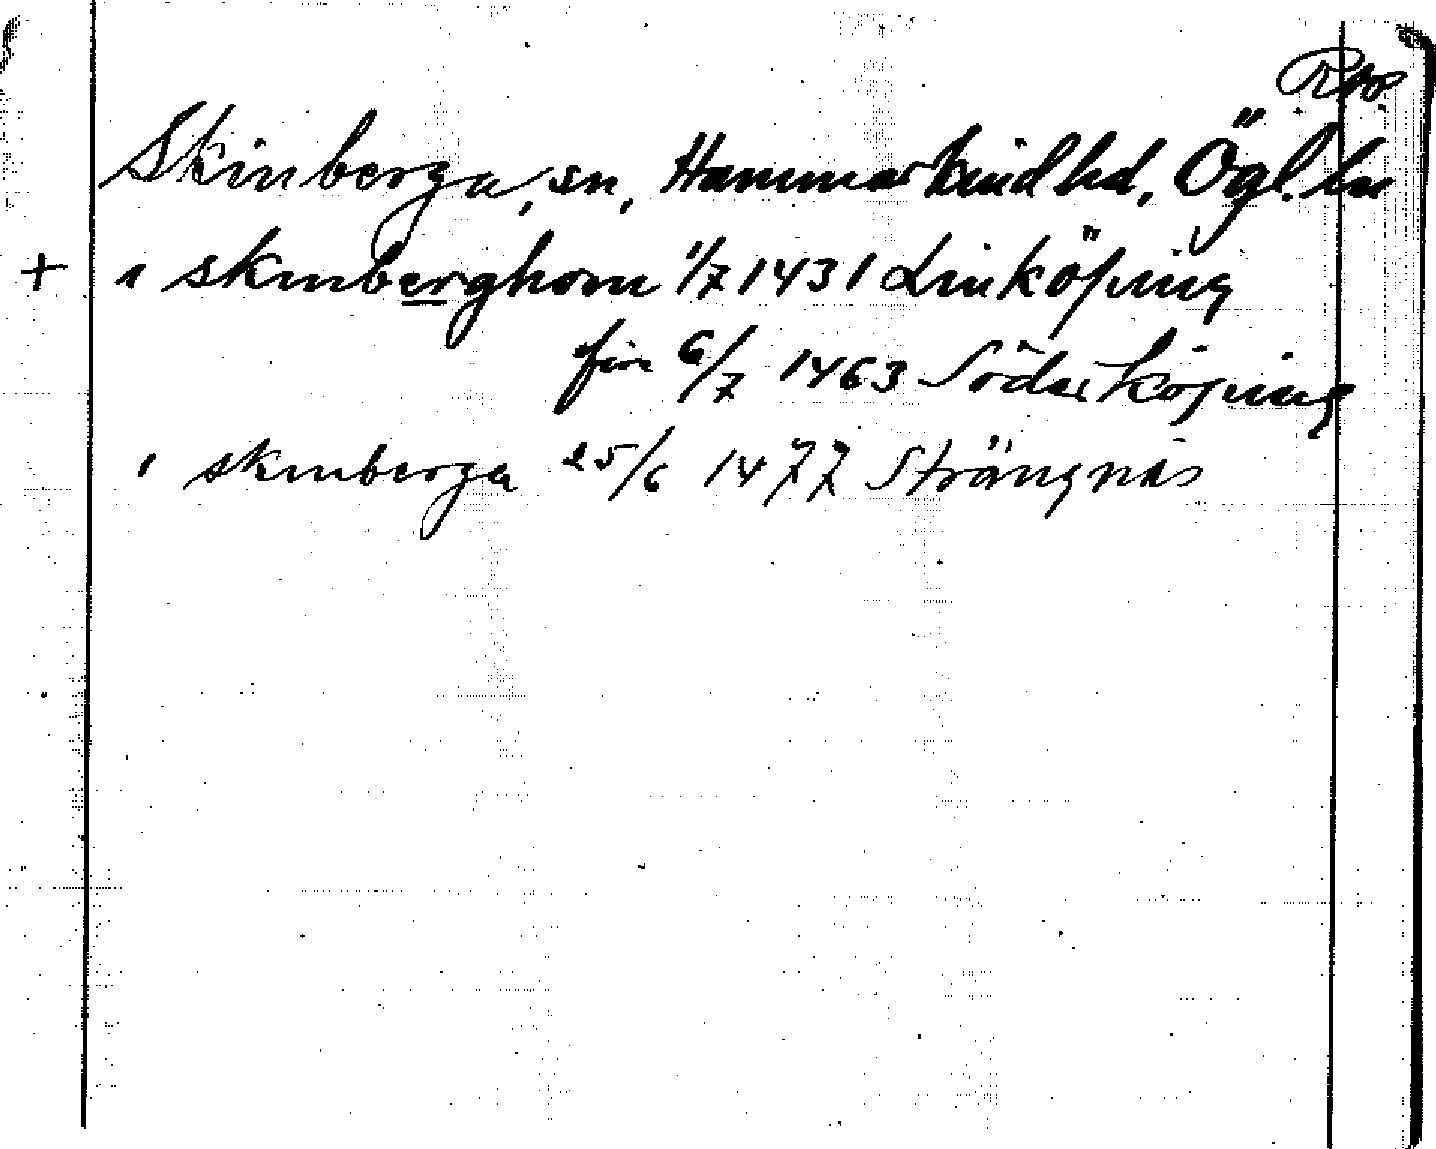 RAp
Skinberga, sn, Hammarkind hd, Ögl. ln
+ i skinberghom 1/7 1431 Linköping
för 6/7 1463 Söderköping
i skinberga 25/6 1477 Strängnäs